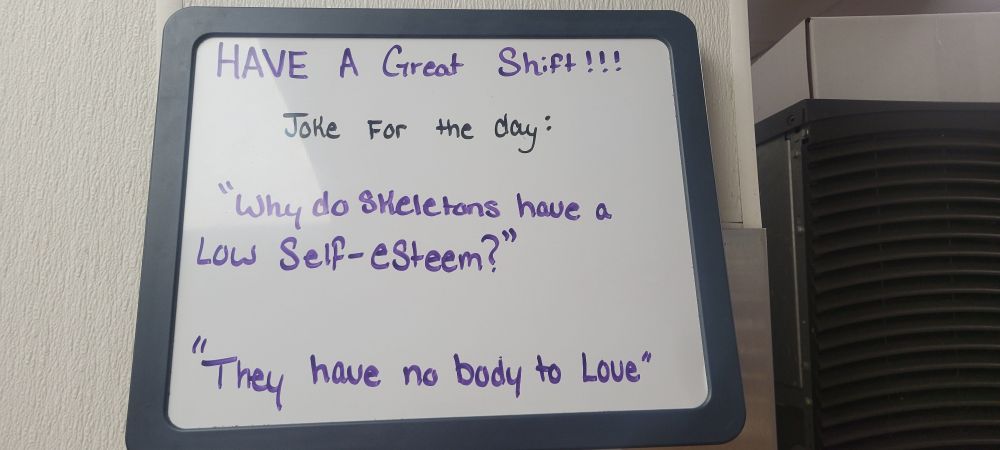 HAVE A Great Shift!!!
Joke For the day:
"Why do Skeletons have a
Low Self-eSteem?"
"They have no body to Love"